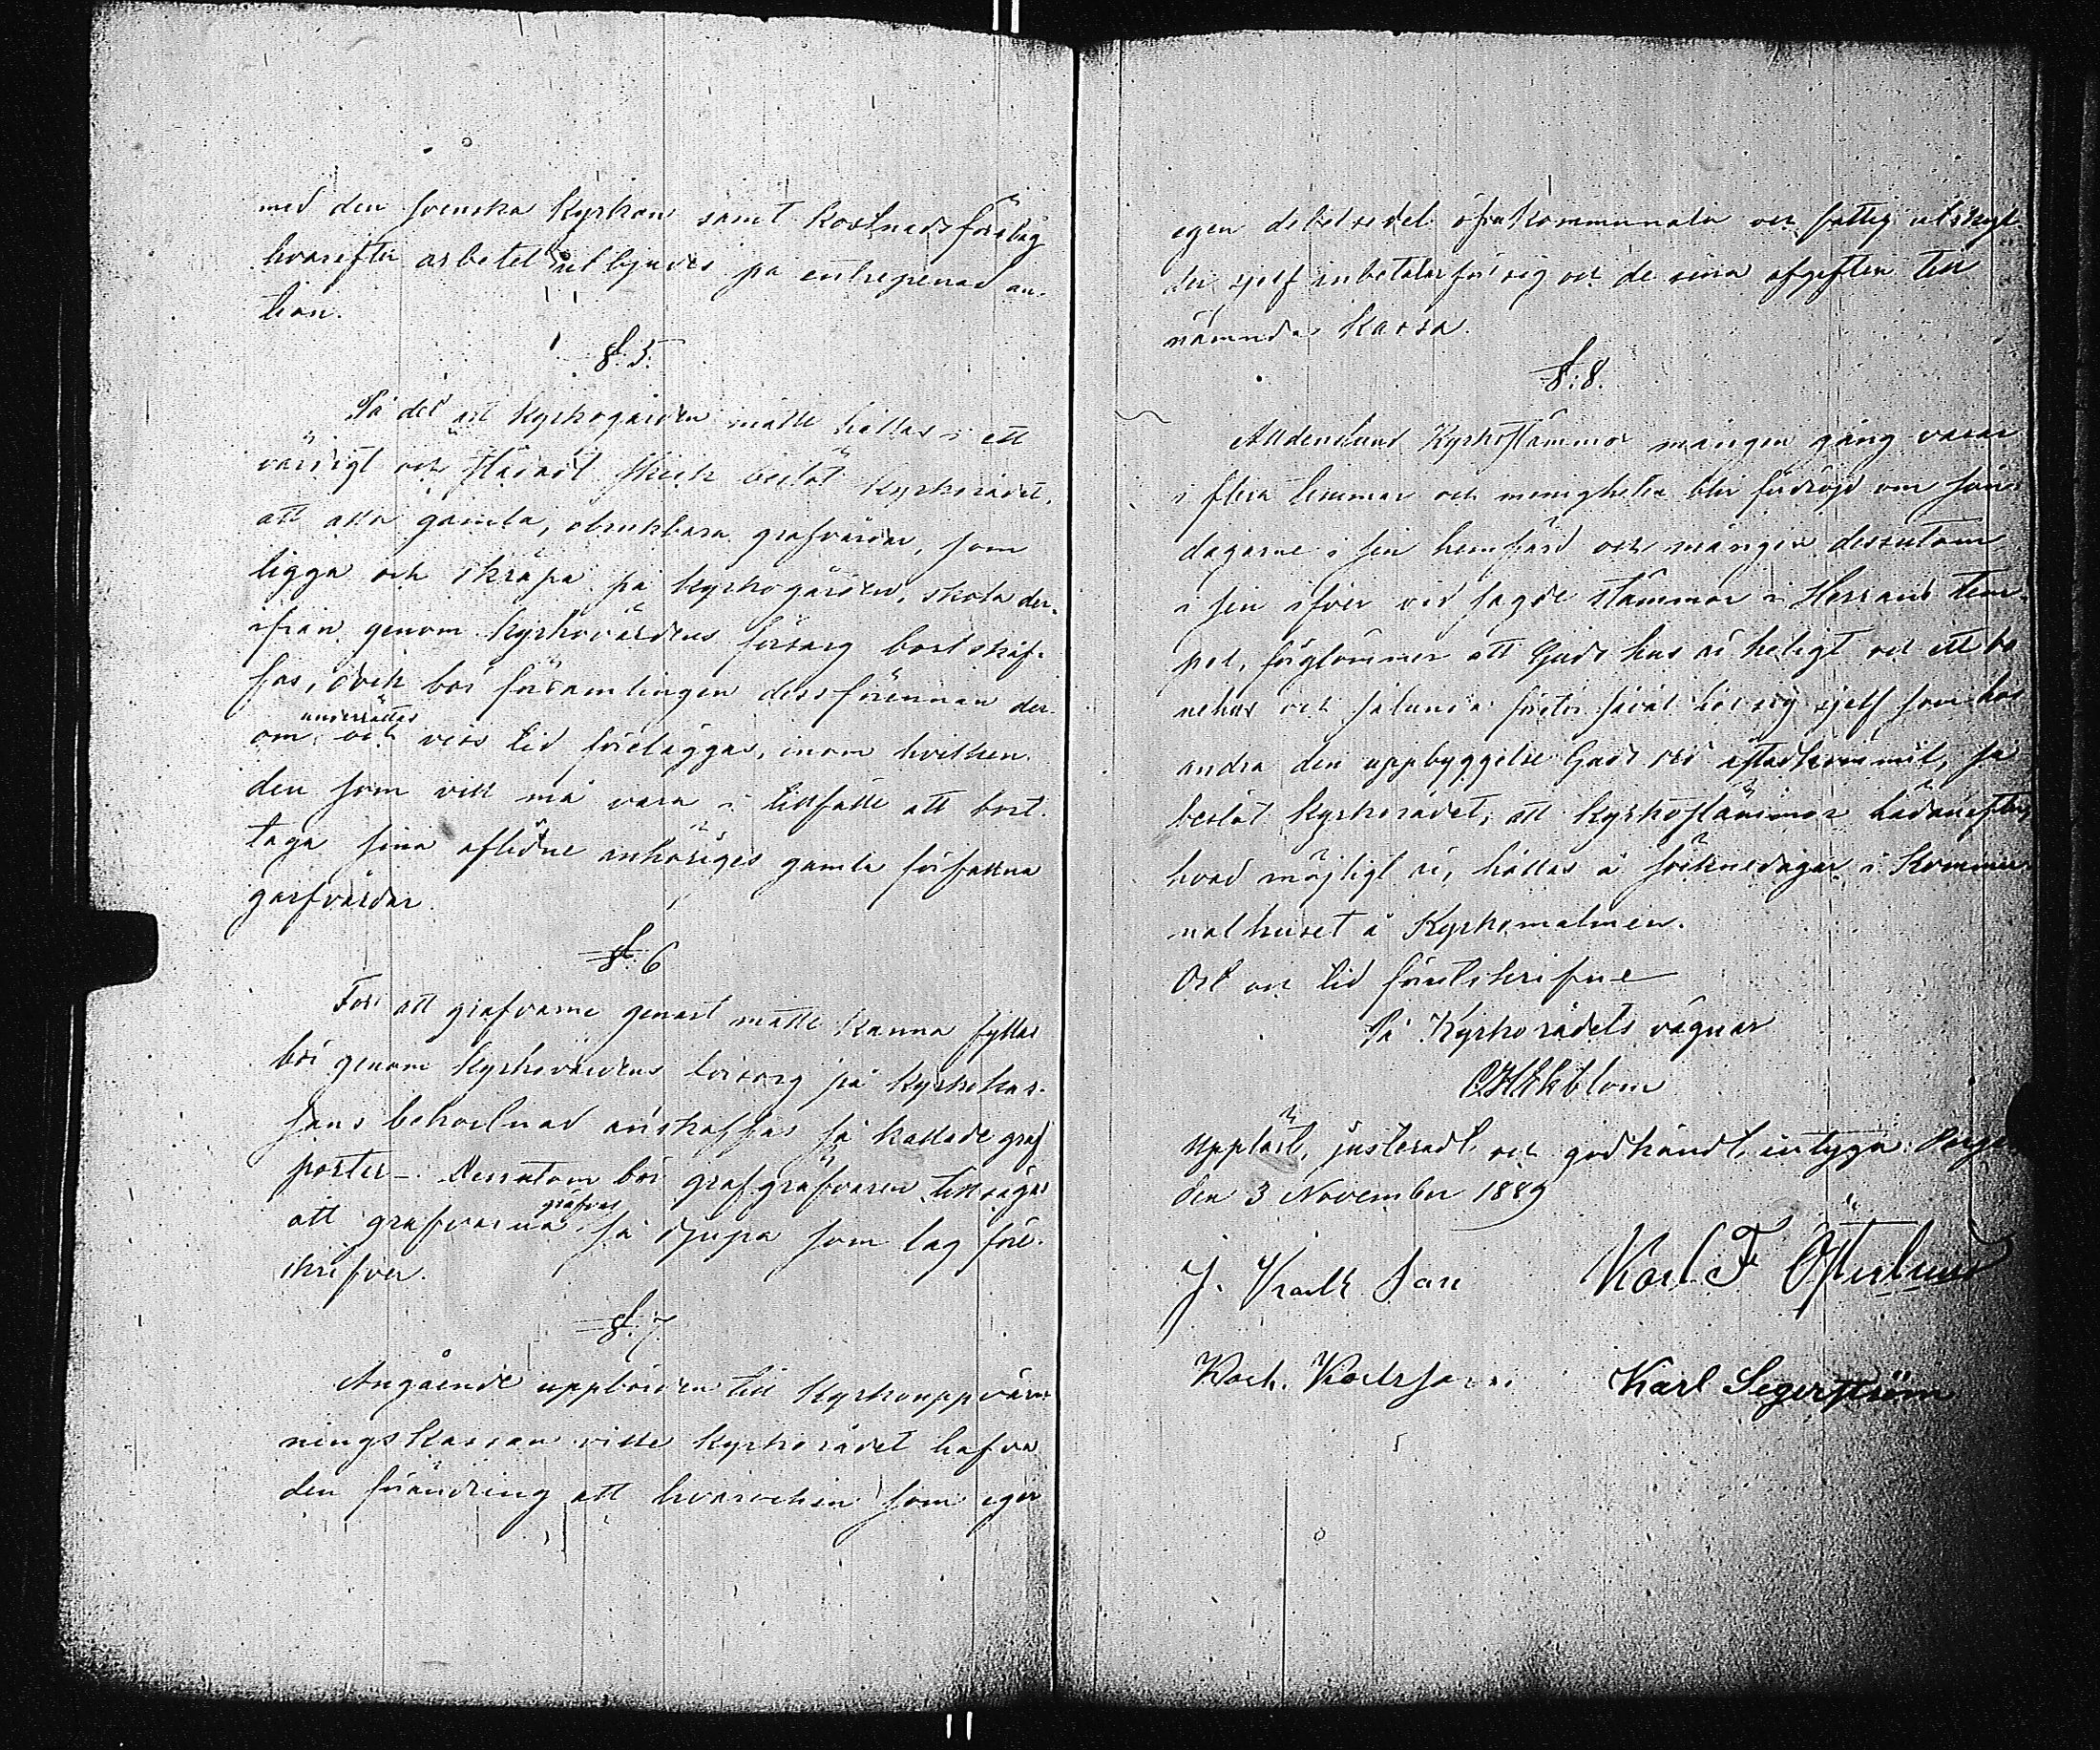 med den svenska kyrkan samt kostnadsförslag
hvarefter arbetet utbjudes på entreprenad auk-
tion.
§. 5.
På det att kyrkogården måtte hållas i ett
värdigt och städadt skick beslöt kyrkorådet,
att alla gamla, obrukbara grafvårdar, som
ligga och skräpa på kyrkogården, skola der-
ifrån genom kyrkovärdens försorg bortskaf-
fas, dock bör församlingen dessförinnan der-
underrättas
om och viss tid föreläggas, inom hvilken
den som vill må vara i tillfälle att bort-
taga sina aflidne anhöriges gamla förfallna
garfvårdar.
§. 6
För att grafvarne genast måtte kunna fyllas
bör genom kyrkovärdens försorg på kyrkokas-
sans bekostnad anskaffas så kallade graf
portar. Dessutom bör grafgräfvaren tillsägas
gräfvas
att grafvarna så djupa som lag före-
skrifver.
§. 7
Angående uppbörden till kyrkouppvärm
ningskassan ville kyrkorådet hafva
den förändring att hvarochen som eger
egen debetsedel å kommunala och fattig utskyl
der sjelf inbetalar för sig och de sina afgiften till
nämnda kassa.
§. 8.
Alldenstund Kyrkostämmor mången gång varar
i flera timmar och menigheten blir fördröjd om sön-
dagarne i sin hemfärd och mången dessutom
i sin ifver vid sagde stämmor i Herrans tem-
pel, förglömmer att Guds hus är heligt och ett bö
nehus och sålunda förstör såväl hos sig sjelf som hos
andra den uppbyggelse Guds ord åstadkommit, så
beslöt kyrkorådet, att kyrkostämmor hädanefter,
hvad möjligt är, hållas å söknedagar i Kommu-
nalhuset å Kyrkomalmen.
Ort och tid förutskrifne
På Kyrkorådets vägnar
C H Ekblom
Uppläst, justeradt och godkändt, intyga.
den 3 November 1889
Karl F Österlund
Karl Segerström